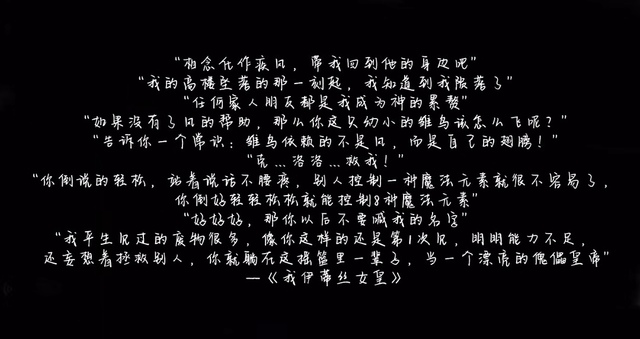 “相念化作疾风，带我回到他的身边吧”
“我的高楼坠落的那一刻起，我知道到我陨落了”
“任何家人朋友都是我成为神的累赘”
“如果没有了风的帮助，那么你这只幼小的雏鸟该怎么飞呢？”
“告诉你一个常识：雏鸟依赖的不是风，而是自己的翅膀！”
“克…洛洛…救我！”
“你倒说的轻松，站着说话不腰疼，别人控制一种魔法元素就很不容易了，
你倒好轻轻松松就能控制8种魔法元素”
“好好好，那你以后不要喊我的名字”
“我平生见过的废物很多，像你这样的还是第1次见，明明能力不足，
还妄想着拯救别人，你就躺在这摇篮里一辈子，当一个漂亮的傀儡皇帝”
—《我伊蒂丝女皇》